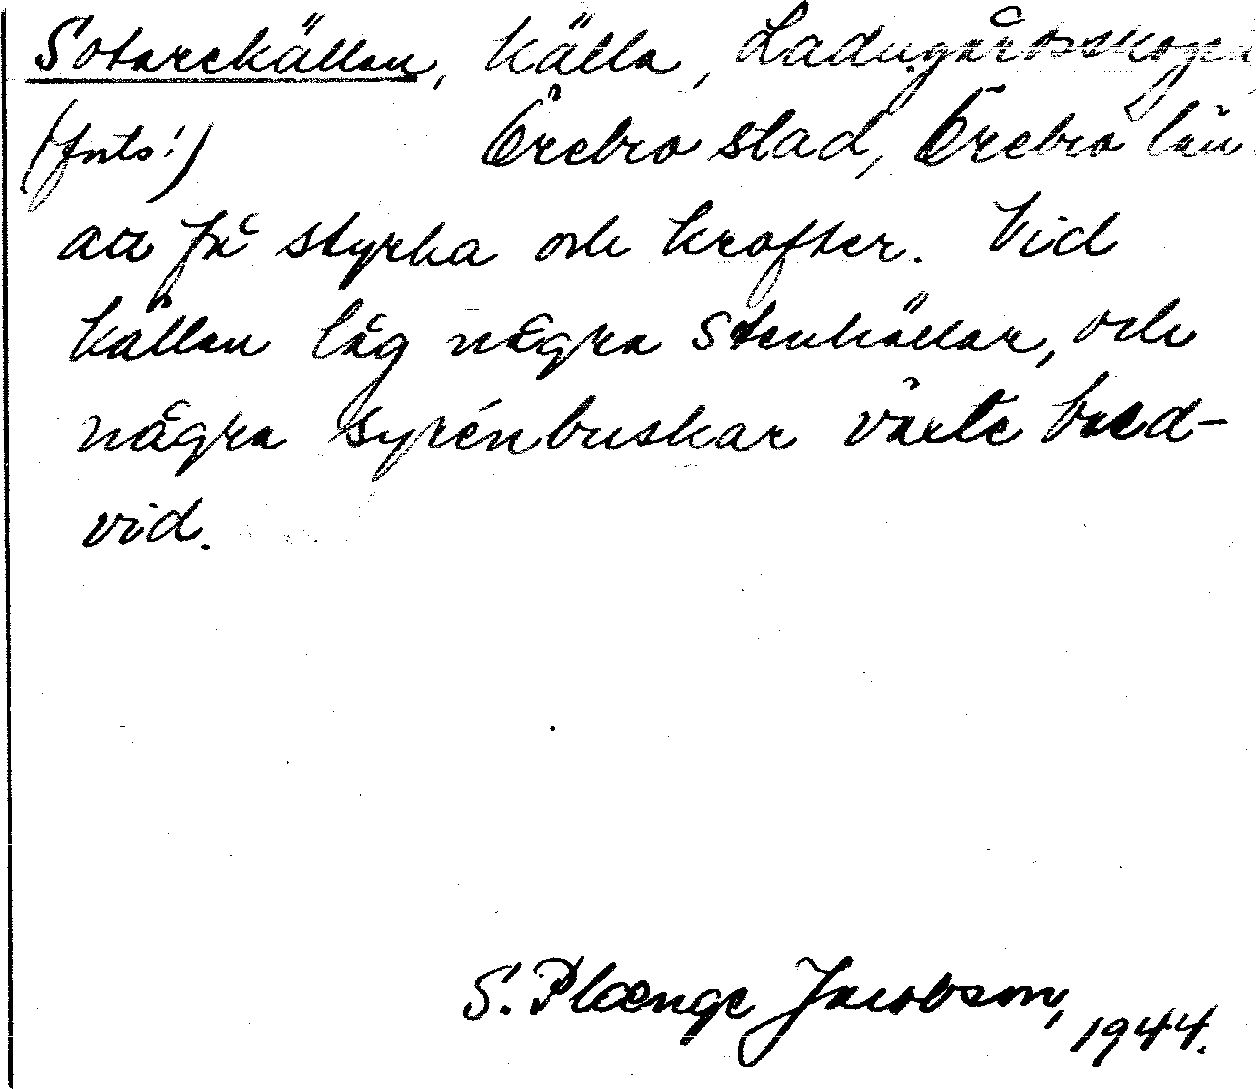 Sotarekällan, källa, Ladugårdsskogen
(forts!) Örebro stad, Örebro län
att få styrka och krafter. Vid
källan låg några stenhällar, och
några syrénbuskar växte bred-
vid.
S. Plænge Jacobson, 1944.